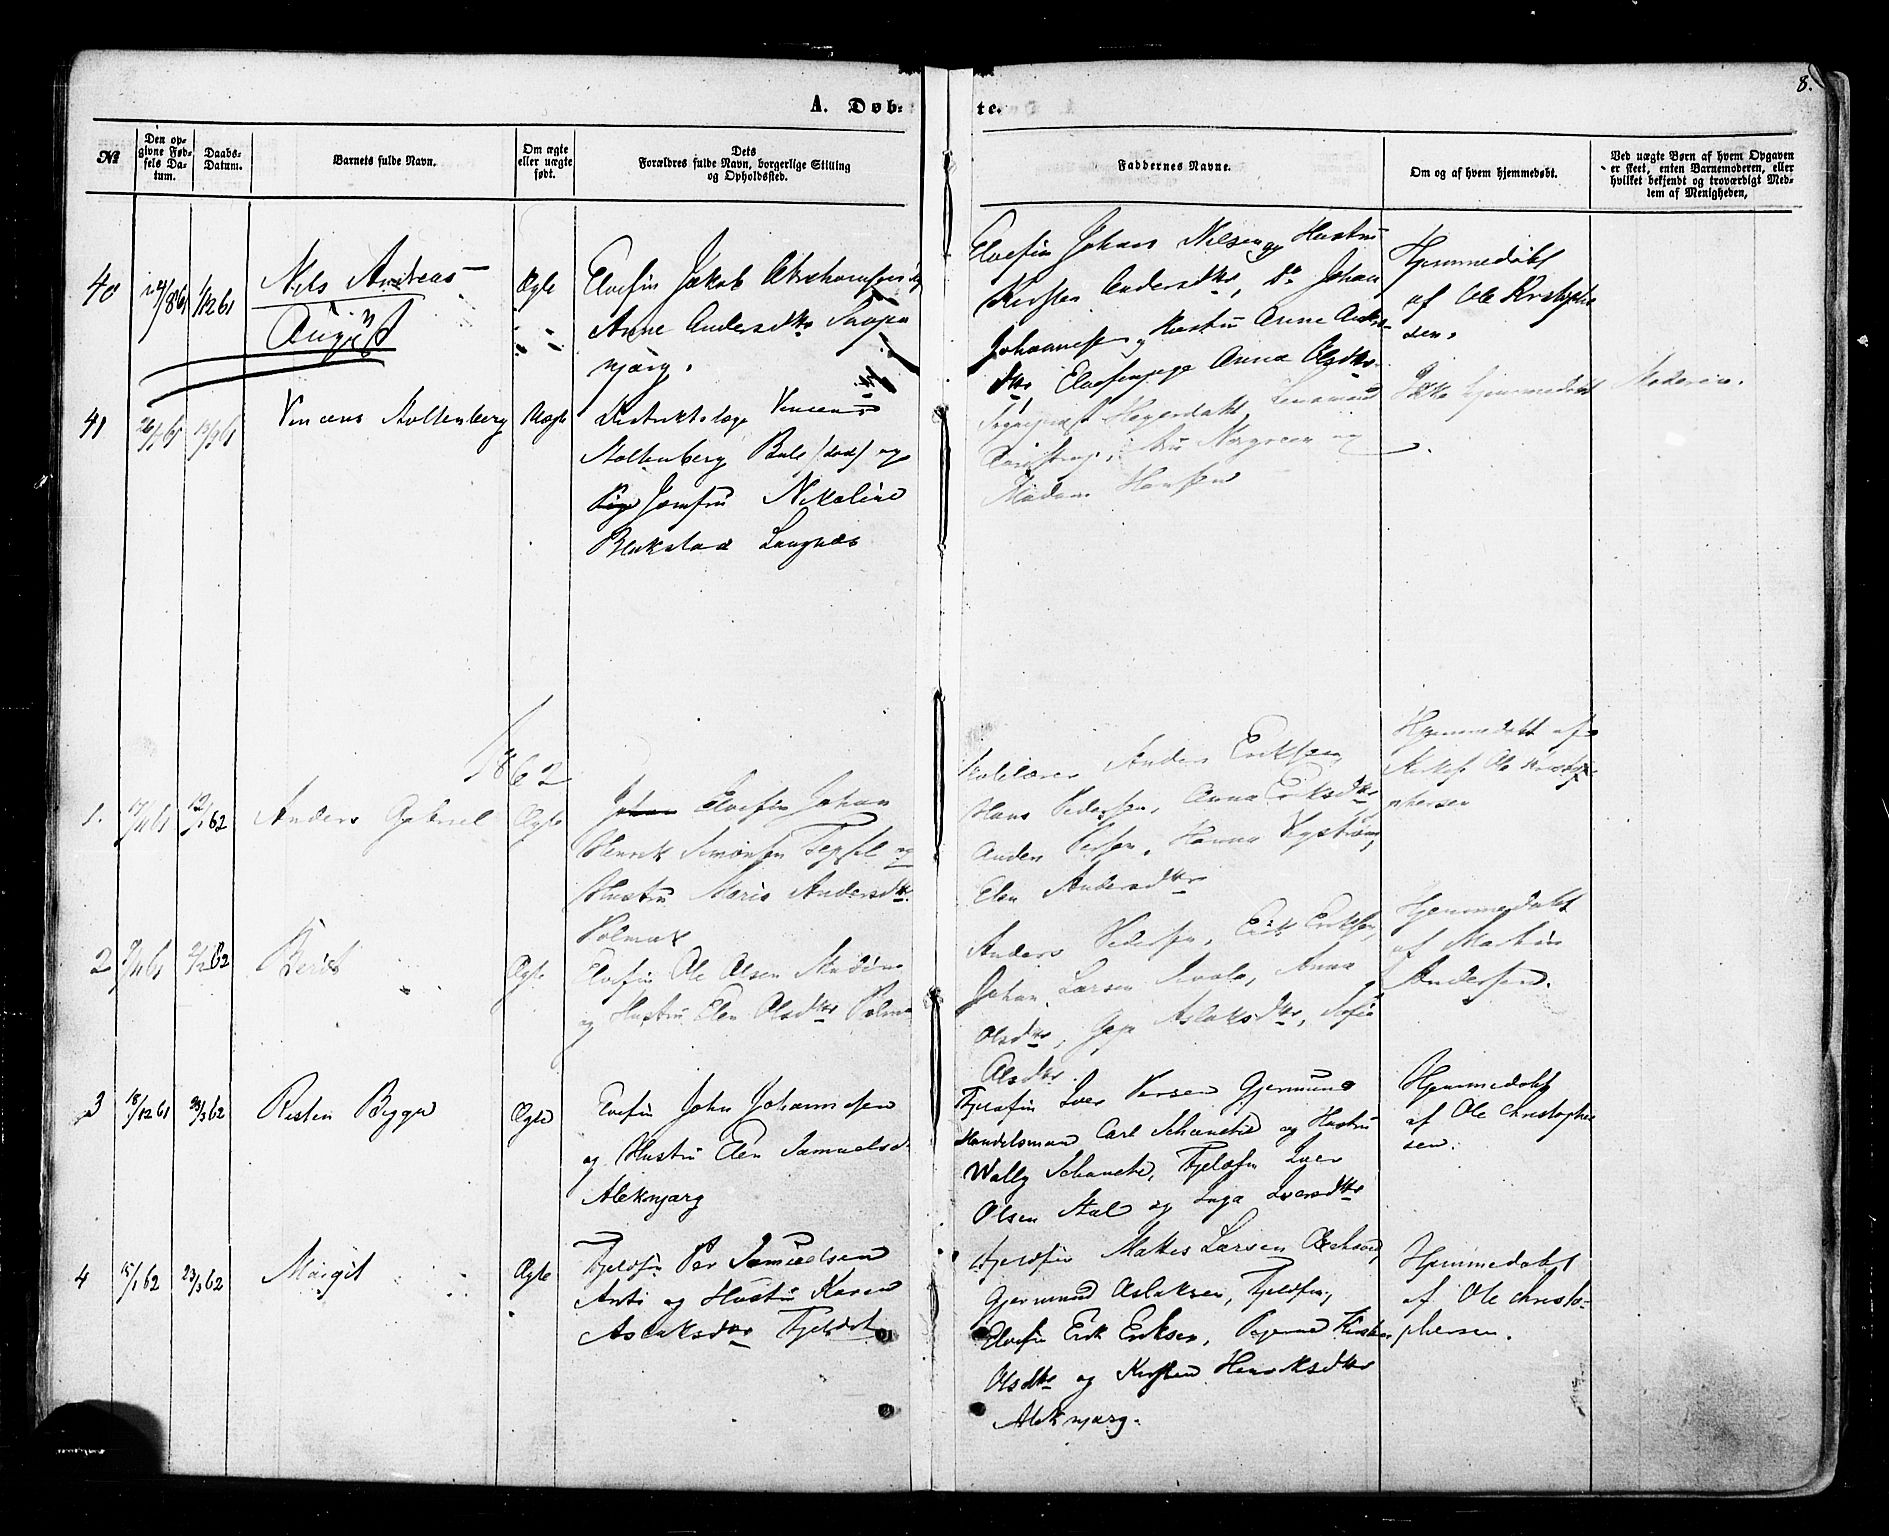 8.
A. Døb-
te.
№
Den op-
givne Fød-
sels Da-
tum.
Daabs-
Datum.
Barnets fulde Navn.
Om ægte
eller uægte
født.
Dets
Forældres fulde Navn, borgerlige Stilling
og Opholdssted.
Faddernes Navne.
Om og af hvem hjemmedøbt.
Ved uægte Børn af hvem Opgaven
er skeet, enten Barnemoderen, eller
hvilket bekjendt og troværdigt Med-
lem af Menigheden.
40
1/12 61
Nils Andreas
August
Ægte
Elvefin Jakob Abrahamsen og
Anne Andersdtr
njarg.
Elvefin Johan Nilsen og Hustru
Kirsten Andersdtr, Do Johan
Johannessen og Hustru Anne Anders-
dtr, Elvefinpige Anna Olsdtr
Hjemmedøbt
af Ole Kristopher
sen.
41
Vincens Stoltenberg
Uægte
Distriktslæge Vincens
Stoltenberg Bull (død) og
Pige Jomfru Nikoline
Blakstad Langnæs
og
Madam Hansen
Ikke hjemmedøbt
Moderen.
1862
1.
17/11 61
12/1 62
Anders Gabriel
Ægte
Johan Elvefin Johan
Henrik Simonsen og
Hustru Maria Andersdtr
Polmak
Anders Eriksen,
Hans Pedersen, Anna Eriksdtr
Anders Persen, Hanna
Elen Andersdtr
Hjemmedøbt af
Kirkes. Ole Kristo-
phersen
2
2/2 62
Berit
Ægte
Elvefin Ole Olsen
og Hustru Elen Olsdtr Polmak
Anders Pedersen, Erik Eriksen,
Johan Larsen, Anna
Olsdtr, Aslaksdtr, Sofie
Olsdtr.
Hjemmedøbt
af Mathis
Andersen.
3
18/12 61
23/3 62
Kristen Bigga
Ægte
Elvefin John Johannesen
og Hustru Elen Samuelsd
Aleknjarg
Fjeldfin Iver Persen Gjermund
Handelsmand Carl Schanche og Hustru
Wally Schanche, Fjeldfin Iver
Olsen og Inga Iversdtr
Hjemmedøbt
af Ole Christopher
sen.
4
15/1 62
23/3 62
Margit
Ægte
Fjeldfin Per Samuelsen
Anti og Hustru Karen
Aslaksdtr Fjeldet
Fjeldfin Mathis Larsen
Gjermund Aslaksen, Fjeldfin,
Elvefin Erik Eriksen, Pigerne Kirsten
Olsdtr og Kirsten Henriksdtr
Aleknjarg.
Hjemmedøbt
af Ole Christo-
phersen.